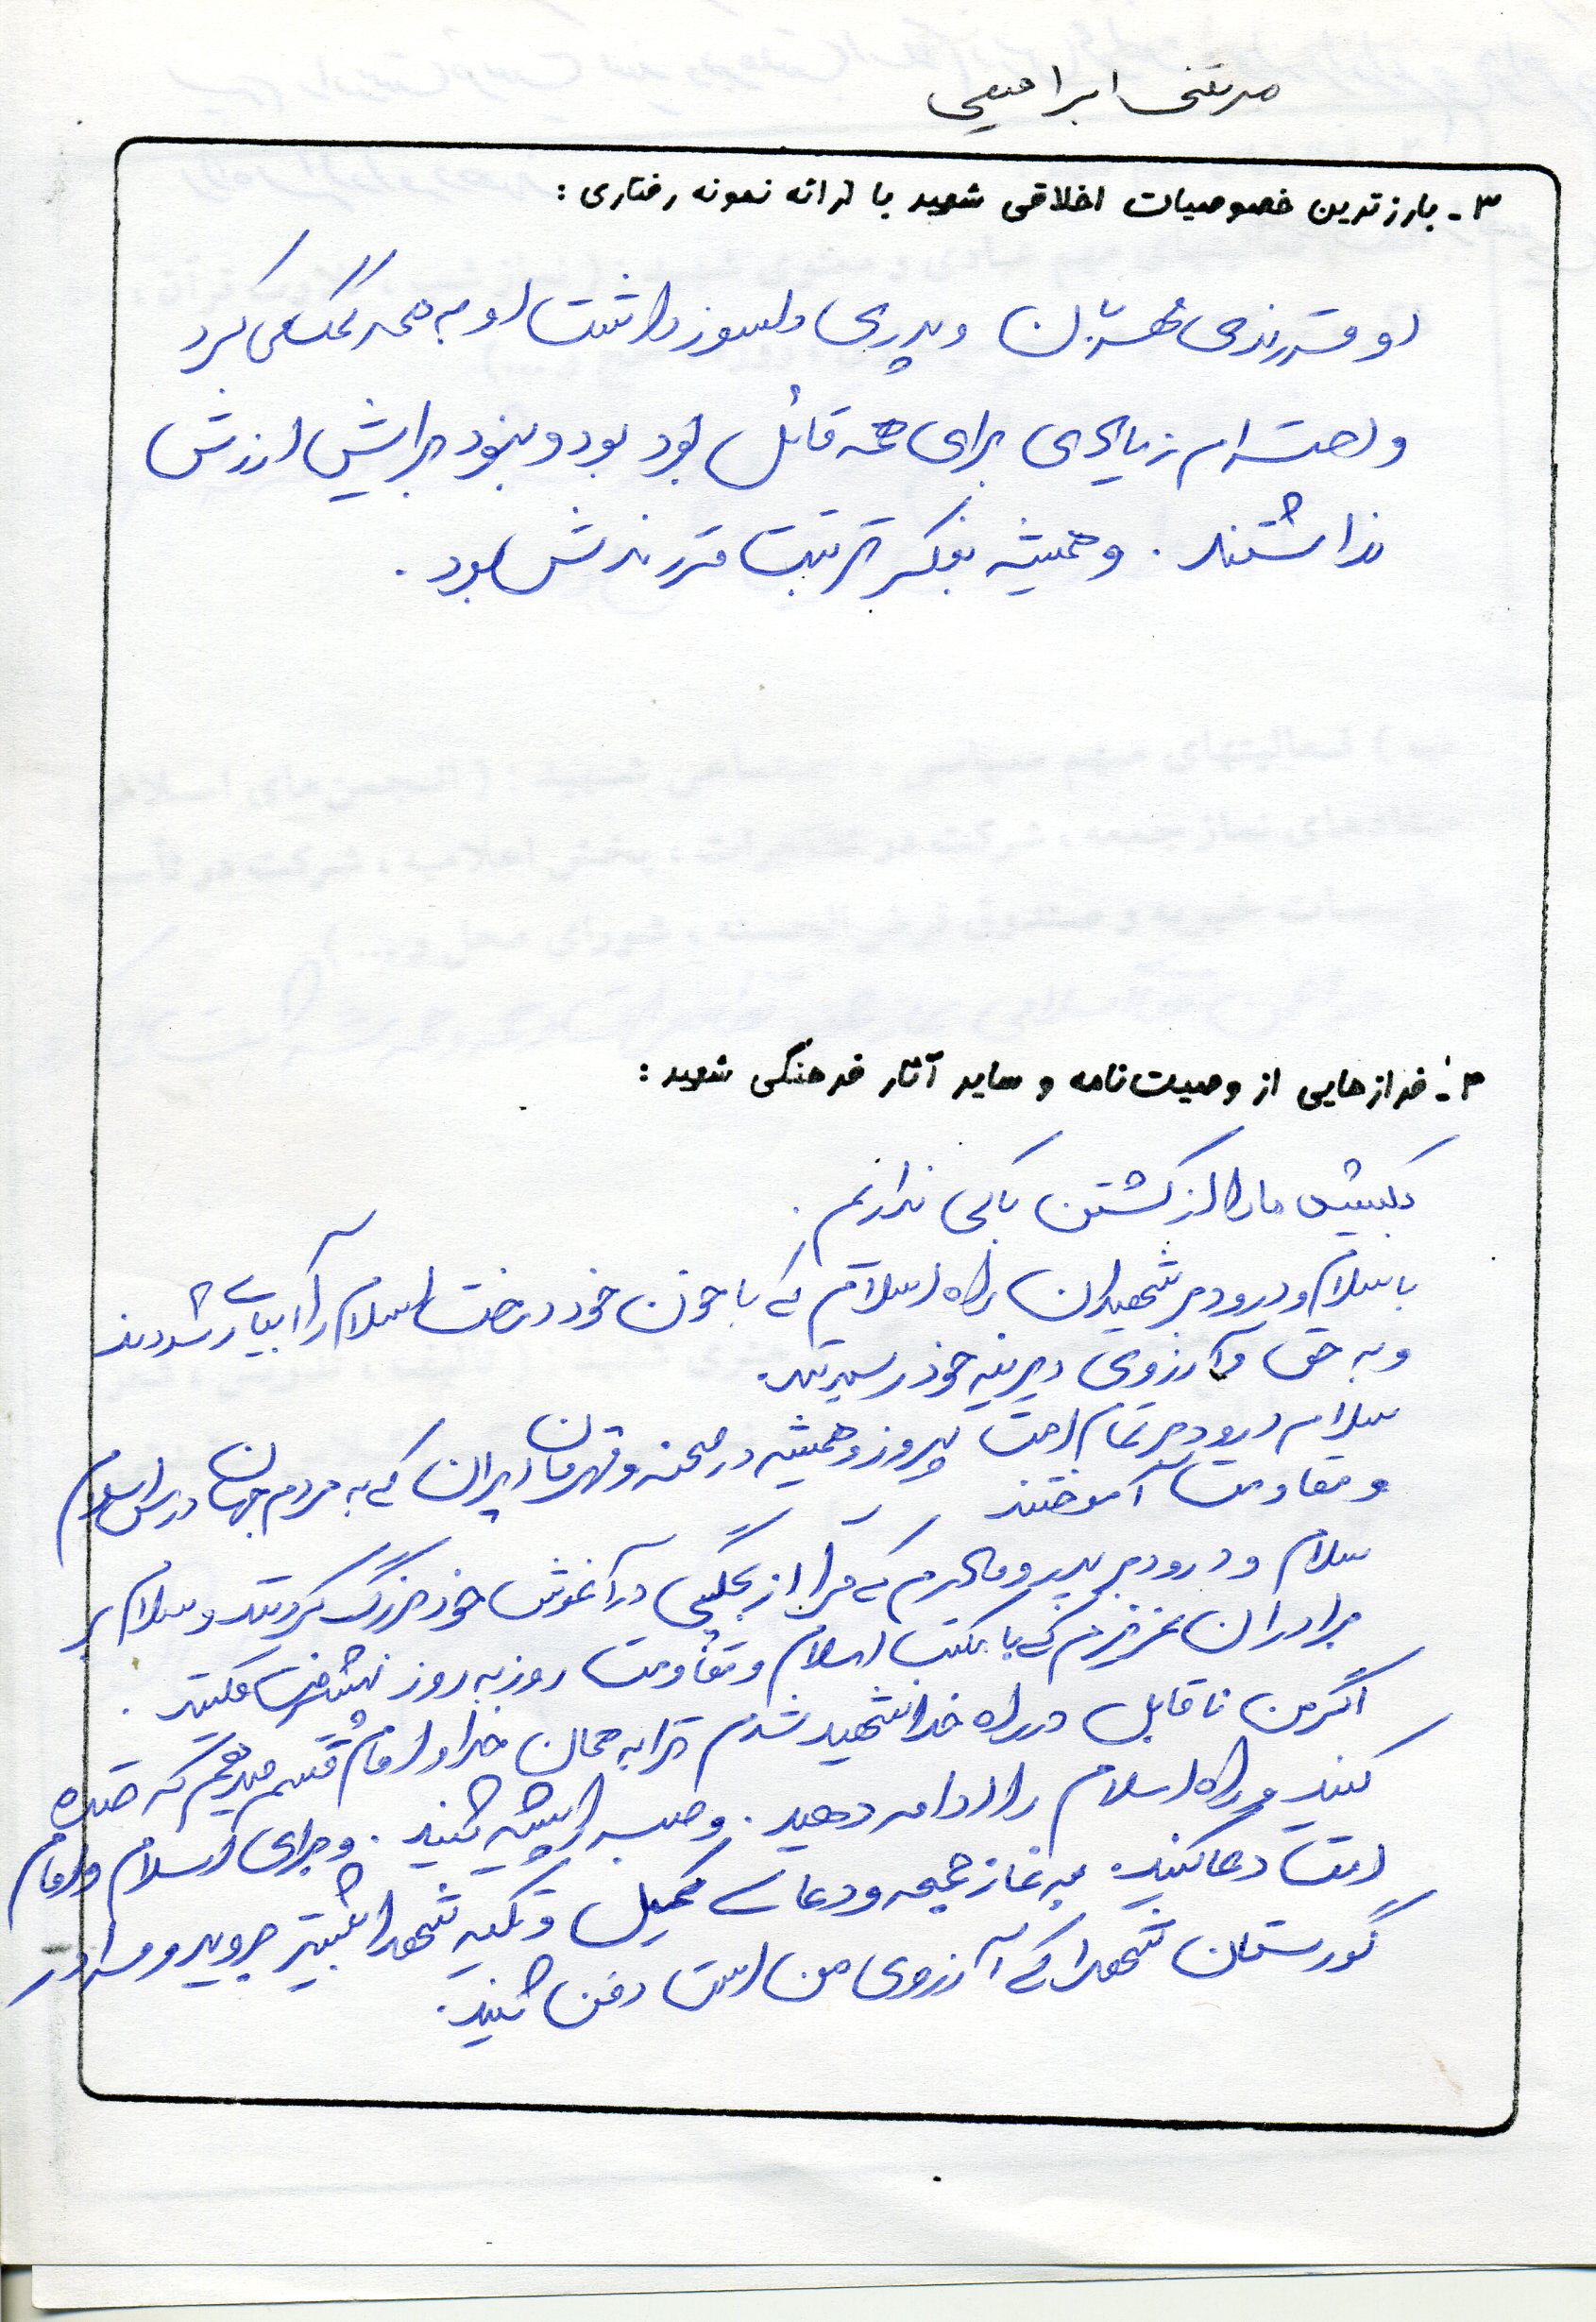 مرتضی ابراهیمی
۳ـ بارزترین خصوصیات اخلاقی شهید با ارائه نمونه رفتاری :
او فرزندی مهربان و پدری دلسوز داشت او به همه کمک می کرد
و احترام زیادی برای همه قائل بود بود و نبود برایش ارزش
نداشتند . و همیشه بفکر تربیت فرزندش بود .
۴ـ فرازهایی از وصیت‌نامه و سایر آثار فرهنگی شهید :
بکشید ما را از کشتن باکی نداریم .
با سلام و درود بر شهیدان راه اسلام که با خون خود درخت اسلام را آبیاری
و به حق و آرزوی دیرینه خود رسیدند.
سلام درود بر تمام امت پیروز و همیشه در صحنه و قهرمان ایران که به مردم جهان درس اسلام
و مقاومت آموختند
سلام و درود بر پدر و مادرم که مرا از بچگی در آغوش خود بزرگ کردید و سلام بر
برادران عزیزم که با مکتب اسلام و مقاومت روز به روز پیشرفت میکنید .
اگر من ناقابل در راه خدا شهید شدم ترا به همان خدا و امام قسم میدهم که
کنید و راه اسلام را ادامه دهید . و صبر را پیشه کنید . و برای اسلام و امام
امت دعا کنید. به نماز جمعه و دعای کمیل و تکیه شهدا بیشتر بروید و مرا در
گورستان شهدا که آرزوی من است دفن کنید.